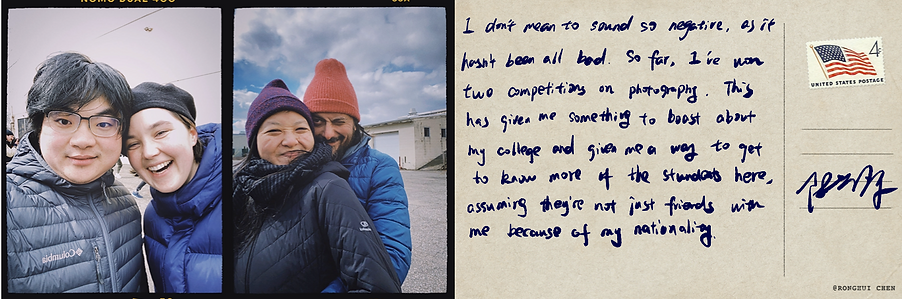 NOMO DUAL 400
Columbia
I don't mean to sound so negative, as it
hasn't been all bad. So far, I've won
two competitions on photography. This
has given me something to boast about
my college and given me a way to get
to know more of the students here,
assuming they're not just friends with
me because of my nationality.
4¢
UNITED STATES POSTAGE
@RONGHUI CHEN